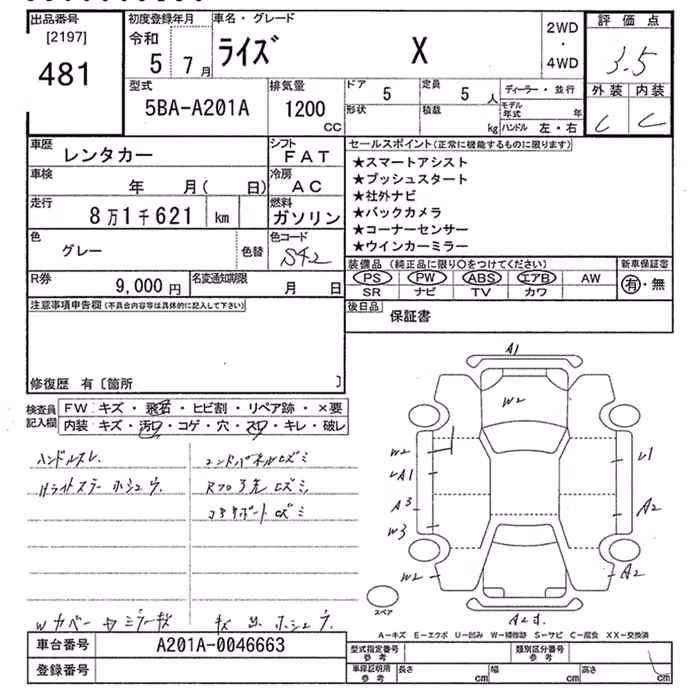 出品番号
[2197]
481
初度登録年月
令和
5 7月
車名・グレード
ライズ X
2WD
・
4WD
評価点
3.5
外装 内装
C C
型式
5BA-A201A
排気量
1200
CC
ドア 5
定員 5 人
形状
積載 kg
ディーラー・並行
モデル年式 年
ハンドル 左・右
車歴
レンタカー
シフト
FAT
車検
年 月( 日)
冷房
AC
走行
8万1千621 km
燃料
ガソリン
色
グレー
色替
色コード
S42
R券
9,000円
名変通知期限
月 日
セールスポイント(正常に機能するものに限ります)
★スマートアシスト
★プッシュスタート
★社外ナビ
★バックカメラ
★コーナーセンサー
★ウインカーミラー
装備品 (純正品に限り○をつけてください)
新車保証書
PS PW ABS エアB AW
有・無
SR ナビ TV カワ
後日品
保証書
注意事項申告欄(不具合内容等は具体的に記入して下さい)
修復歴 有〔箇所 〕
検査員
記入欄
FW キズ・飛石・ヒビ割・リペア跡・×要
内装 キズ・汚れ・コゲ・穴・スレ・キレ・破レ
ハンドルスレ
エンドパネルキズミ
A1
W2
W2
A1
A3
W3
W2
A2
A2
スペア
A-キズ E-エクボ U-凹み W-補修跡 S-サビ C-腐食 XX-交換済
車台番号
A201A-0046663
登録番号
型式指定番号
参考
類別区分番号
参考
車庫証明用
参考
長さ cm
幅 cm
高さ cm